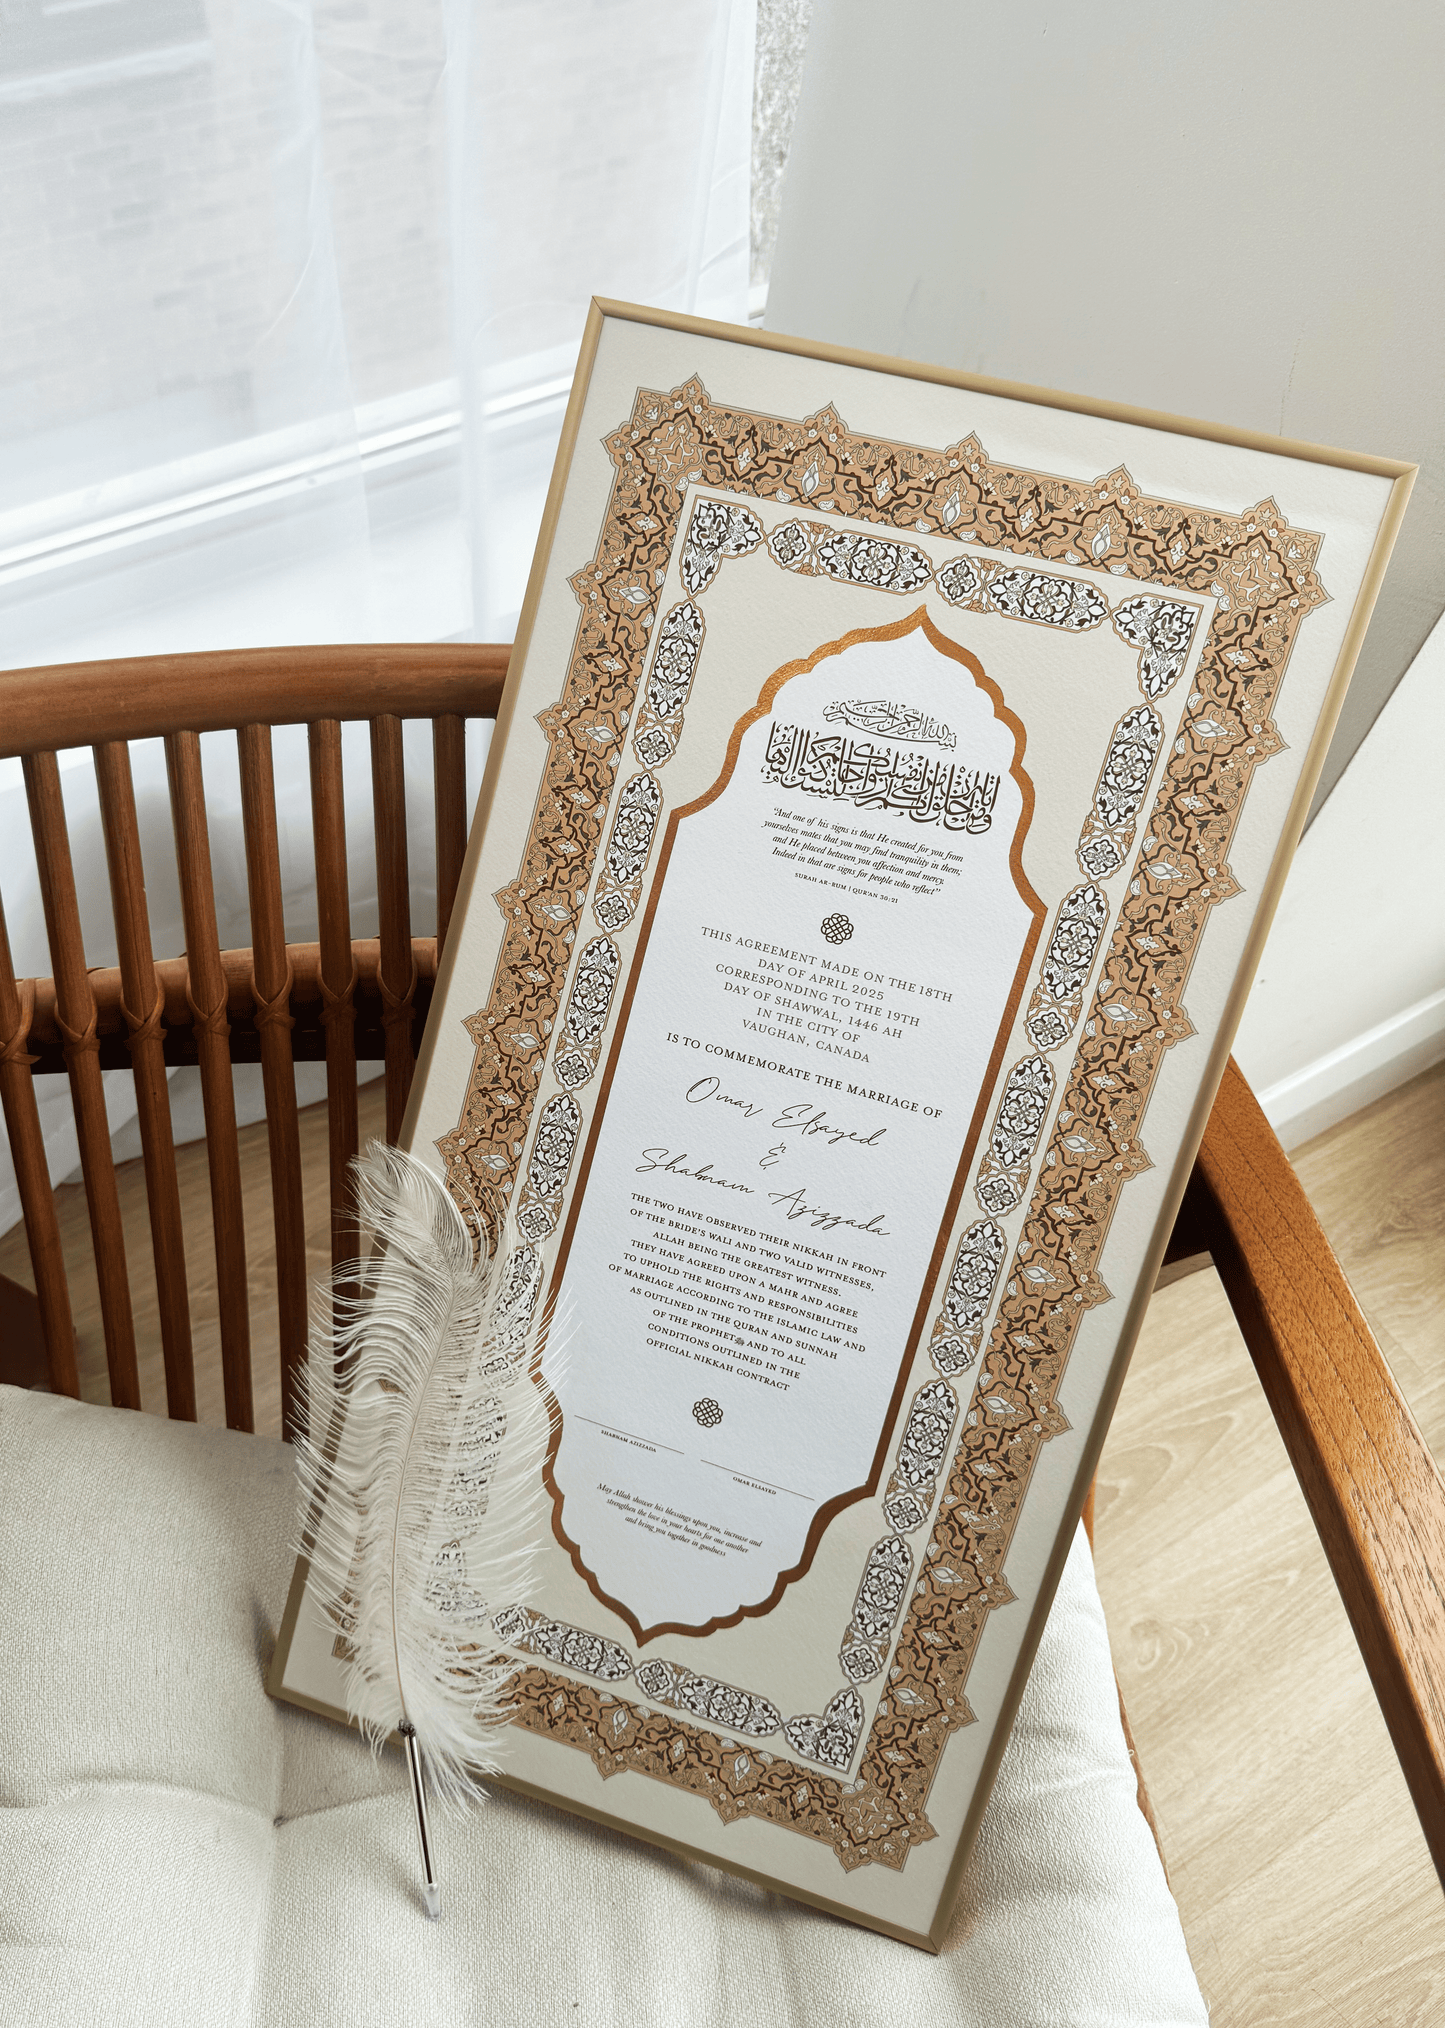 بسم الله الرحمن الرحيم
ومن آياته أن خلق لكم من أنفسكم أزواجا لتسكنوا إليها
“And one of his signs is that He created for you from
yourselves mates that you may find tranquility in them;
and He placed between you affection and mercy.
Indeed in that are signs for people who reflect”
SURAH AR-RUM | QUR'AN 30:21
THIS AGREEMENT MADE ON THE 18TH
DAY OF APRIL 2025
CORRESPONDING TO THE 19TH
DAY OF SHAWWAL, 1446 AH
IN THE CITY OF
VAUGHAN, CANADA
IS TO COMMEMORATE THE MARRIAGE OF
Omar Elsayed
&
Shabnam Azizzada
THE TWO HAVE OBSERVED THEIR NIKKAH IN FRONT
OF THE BRIDE'S WALI AND TWO VALID WITNESSES,
ALLAH BEING THE GREATEST WITNESS.
THEY HAVE AGREED UPON A MAHR AND AGREE
TO UPHOLD THE RIGHTS AND RESPONSIBILITIES
OF MARRIAGE ACCORDING TO THE ISLAMIC LAW AND
AS OUTLINED IN THE QURAN AND SUNNAH
OF THE PROPHETﷺ AND TO ALL
CONDITIONS OUTLINED IN THE
OFFICIAL NIKKAH CONTRACT
SHABNAM AZIZZADA
OMAR ELSAYED
May Allah shower his blessings upon you, increase and
strengthen the love in your hearts for one another
and bring you together in goodness